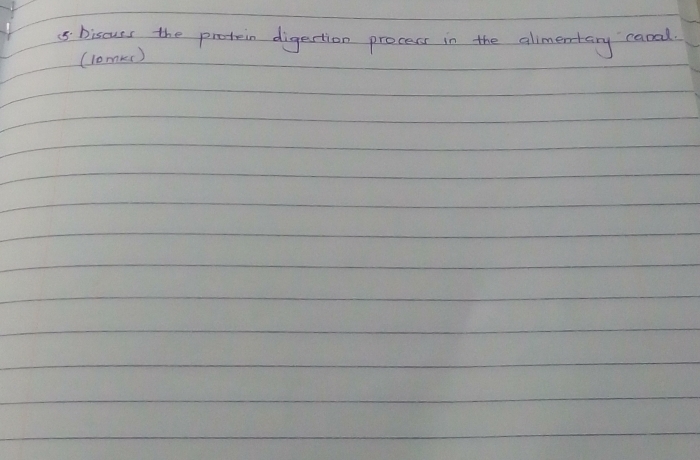 5. Discuss the protein digestion process in the alimentary canal.
(10mks)